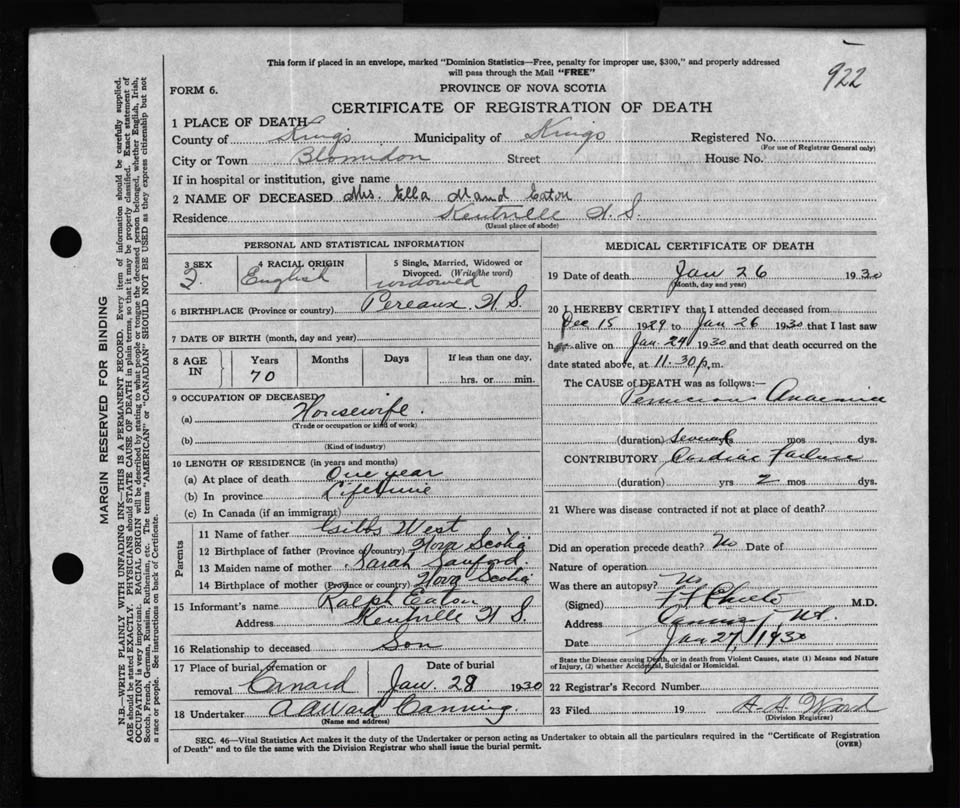 922
This form if placed in an envelope, marked "Dominion Statistics—Free, penalty for improper use, $300," and properly addressed
will pass through the Mail "FREE"
FORM 6.
PROVINCE OF NOVA SCOTIA
CERTIFICATE OF REGISTRATION OF DEATH
1 PLACE OF DEATH
County of Kings Municipality of Kings Registered No.
(For use of Registrar General only)
City or Town Blomidon Street House No.
If in hospital or institution, give name
2 NAME OF DECEASED Mrs. Ella Maud Eaton
Residence Kentville N. S.
(Usual place of abode)
PERSONAL AND STATISTICAL INFORMATION
3 SEX
F.
4 RACIAL ORIGIN
English
5 Single, Married, Widowed or
Divorced. (Write the word)
widowed
6 BIRTHPLACE (Province or country) Pereaux. N. S.
7 DATE OF BIRTH (month, day and year)
8 AGE
IN
Years
70
Months
Days
If less than one day,
hrs. or min.
9 OCCUPATION OF DECEASED
(a) Housewife.
(Trade or occupation or kind of work)
(b)
(Kind of industry)
10 LENGTH OF RESIDENCE (in years and months)
(a) At place of death One year
(b) In province Lifetime
(c) In Canada (if an immigrant)
Parents
11 Name of father Gibbs West
12 Birthplace of father (Province or country) Nova Scotia
13 Maiden name of mother Sarah Sanford
14 Birthplace of mother (Province or country) Nova Scotia
15 Informant's name Ralph Eaton
Address Kentville N. S.
16 Relationship to deceased Son
17 Place of burial, cremation or
removal Canard
Date of burial
Jan. 28 1930
18 Undertaker A A Ward Canning.
(Name and address)
MEDICAL CERTIFICATE OF DEATH
19 Date of death Jan 26 1930
(Month, day and year)
20 I HEREBY CERTIFY that I attended deceased from
Dec 15 1929 to Jan 26 1930 that I last saw
her alive on Jan. 24 1930 and that death occurred on the
date stated above, at 11.30 p. m.
The CAUSE of DEATH was as follows:—
Pernicious Anaemia
(duration) Several yrs mos dys.
CONTRIBUTORY Cardiac Failure
(duration) yrs 2 mos dys.
21 Where was disease contracted if not at place of death?
Did an operation precede death? No Date of
Nature of operation
Was there an autopsy? No
(Signed) M.D.
Address Canning N.S.
Date Jan 27, 1930
State the Disease causing Death, or in death from Violent Causes, state (1) Means and Nature
of Injury, (2) whether Accidental, Suicidal or Homicidal.
22 Registrar's Record Number
23 Filed 19 A. A. Ward
(Division Registrar)
SEC. 46—Vital Statistics Act makes it the duty of the Undertaker or person acting as Undertaker to obtain all the particulars required in the "Certificate of Registration
of Death" and to file the same with the Division Registrar who shall issue the burial permit.
(OVER)
MARGIN RESERVED FOR BINDING
N.B.—WRITE PLAINLY WITH UNFADING INK—THIS IS A PERMANENT RECORD. Every item of information should be carefully supplied.
AGE should be stated EXACTLY. PHYSICIANS should STATE CAUSE OF DEATH in plain terms, so that it may be properly classified. Exact statement of
OCCUPATION is very important. RACIAL ORIGIN will be described by stating to what people or tongue the deceased person belonged, whether English, Irish,
Scotch, French, German, Russian, Ruthenian, etc. The terms "AMERICAN" or "CANADIAN" SHOULD NOT BE USED as they express citizenship but not
a race or people. See instructions on back of Certificate.